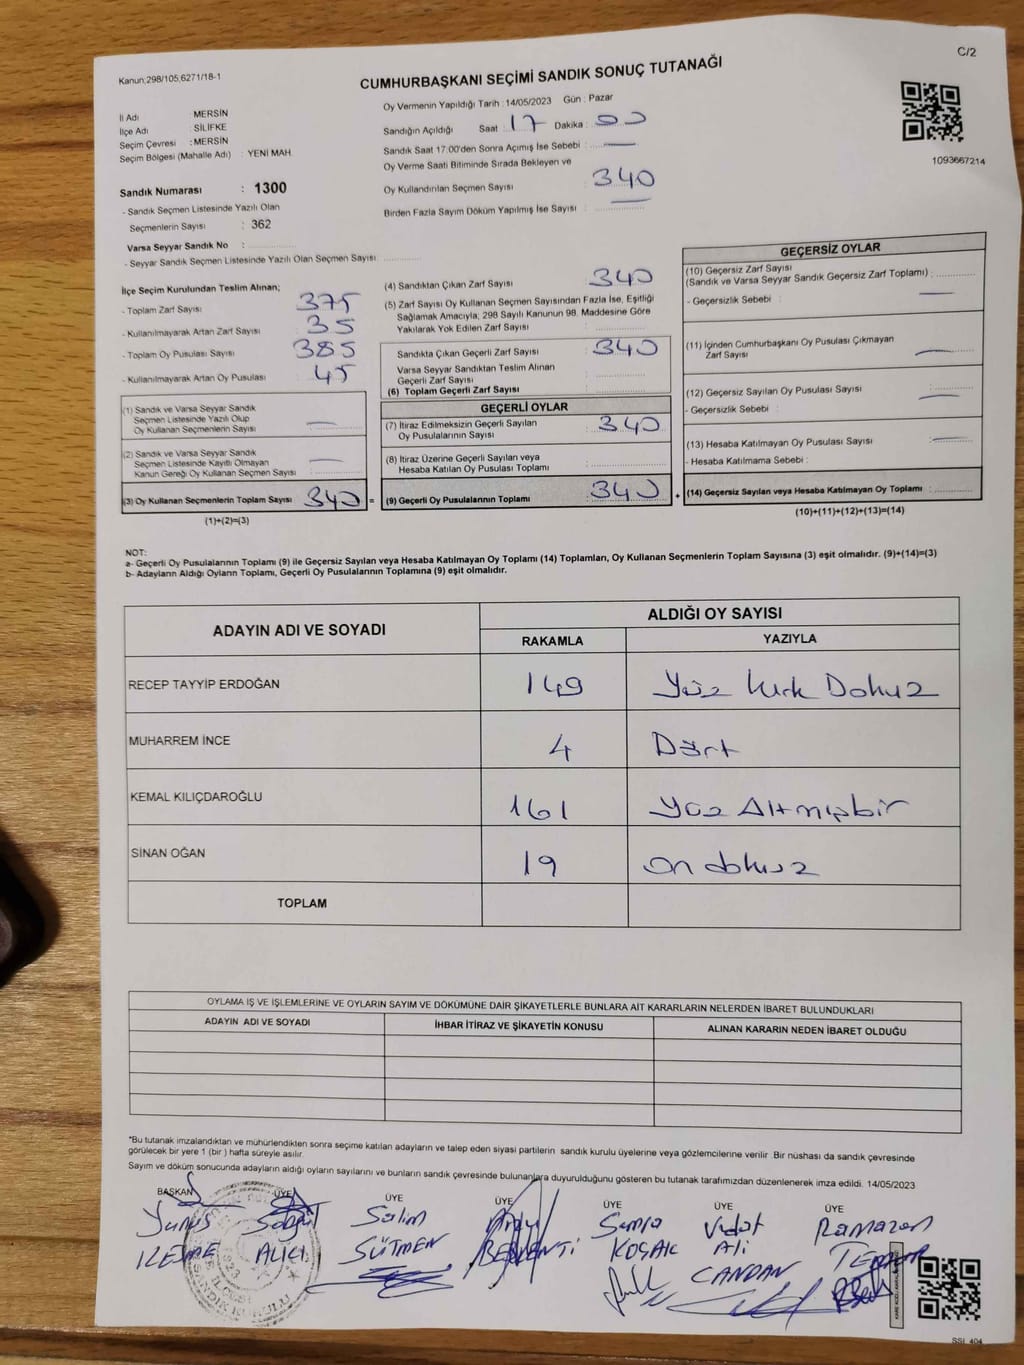 C/2
Kanun:298/105;6271/18-1
CUMHURBAŞKANI SEÇİMİ SANDIK SONUÇ TUTANAĞI
1093667214
İl Adı MERSİN
İlçe Adı SİLİFKE
Seçim Çevresi : MERSİN
Seçim Bölgesi (Mahalle Adı) : YENİ MAH
Sandık Numarası : 1300
- Sandık Seçmen Listesinde Yazılı Olan
Seçmenlerin Sayısı : 362
Varsa Seyyar Sandık No :
- Seyyar Sandık Seçmen Listesinde Yazılı Olan Seçmen Sayısı:
Oy Vermenin Yapıldığı Tarih : 14/05/2023 Gün : Pazar
Sandığın Açıldığı Saat : 17 Dakika : 00
Sandık Saat 17:00'den Sonra Açımış İse Sebebi :
Oy Verme Saati Bitiminde Sırada Bekleyen ve
Oy Kullandırılan Seçmen Sayısı 340
Birden Fazla Sayım Döküm Yapılmış İse Sayısı :
İlçe Seçim Kurulundan Teslim Alınan;
- Toplam Zarf Sayısı 375
- Kullanılmayarak Artan Zarf Sayısı 35
- Toplam Oy Pusulası Sayısı 385
- Kullanılmayarak Artan Oy Pusulası 45
(1) Sandık ve Varsa Seyyar Sandık
Seçmen Listesinde Yazılı Olup
Oy Kullanan Seçmenlerin Sayısı :
(2) Sandık ve Varsa Seyyar Sandık
Seçmen Listesinde Kayıtlı Olmayan
Kanun Gereği Oy Kullanan Seçmen Sayısı :
(3) Oy Kullanan Seçmenlerin Toplam Sayısı 340 =
(1)+(2)=(3)
(4) Sandıktan Çıkan Zarf Sayısı 340
(5) Zarf Sayısı Oy Kullanan Seçmen Sayısından Fazla İse, Eşitliği
Sağlamak Amacıyla; 298 Sayılı Kanunun 98. Maddesine Göre
Yakılarak Yok Edilen Zarf Sayısı :
Sandıkta Çıkan Geçerli Zarf Sayısı : 340
Varsa Seyyar Sandıktan Teslim Alınan
Geçerli Zarf Sayısı :
(6) Toplam Geçerli Zarf Sayısı :
GEÇERLİ OYLAR
(7) İtiraz Edilmeksizin Geçerli Sayılan
Oy Pusulalarının Sayısı : 340
(8) İtiraz Üzerine Geçerli Sayılan veya
Hesaba Katılan Oy Pusulası Toplamı :
(9) Geçerli Oy Pusulalarının Toplamı : 340 +
GEÇERSİZ OYLAR
(10) Geçersiz Zarf Sayısı
(Sandık ve Varsa Seyyar Sandık Geçersiz Zarf Toplamı) :
- Geçersizlik Sebebi :
(11) İçinden Cumhurbaşkanı Oy Pusulası Çıkmayan
Zarf Sayısı :
(12) Geçersiz Sayılan Oy Pusulası Sayısı :
- Geçersizlik Sebebi :
(13) Hesaba Katılmayan Oy Pusulası Sayısı :
- Hesaba Katılmama Sebebi :
(14) Geçersiz Sayılan veya Hesaba Katılmayan Oy Toplamı :
(10)+(11)+(12)+(13)=(14)
NOT:
a- Geçerli Oy Pusulalarının Toplamı (9) ile Geçersiz Sayılan veya Hesaba Katılmayan Oy Toplamı (14) Toplamları, Oy Kullanan Seçmenlerin Toplam Sayısına (3) eşit olmalıdır. (9)+(14)=(3)
b- Adayların Aldığı Oyların Toplamı, Geçerli Oy Pusulalarının Toplamına (9) eşit olmalıdır.
ADAYIN ADI VE SOYADI
ALDIĞI OY SAYISI
RAKAMLA YAZIYLA
RECEP TAYYİP ERDOĞAN 149 Yüz kırk Dokuz
MUHARREM İNCE 4 Dört
KEMAL KILIÇDAROĞLU 161 Yüz Altmışbir
SİNAN OĞAN 19 on dokuz
TOPLAM
OYLAMA İŞ VE İŞLEMLERİNE VE OYLARIN SAYIM VE DÖKÜMÜNE DAİR ŞİKAYETLERLE BUNLARA AİT KARARLARIN NELERDEN İBARET BULUNDUKLARI
ADAYIN ADI VE SOYADI İHBAR İTİRAZ VE ŞİKAYETİN KONUSU ALINAN KARARIN NEDEN İBARET OLDUĞU
*Bu tutanak imzalandıktan ve mühürlendikten sonra seçime katılan adayların ve talep eden siyasi partilerin sandık kurulu üyelerine veya gözlemcilerine verilir. Bir nüshası da sandık çevresinde
görülecek bir yere 1 (bir ) hafta süreyle asılır.
Sayım ve döküm sonucunda adayların aldığı oyların sayılarını ve bunların sandık çevresinde bulunanlara duyurulduğunu gösteren bu tutanak tarafımızdan düzenlenerek imza edildi. 14/05/2023
BAŞKAN ÜYE ÜYE ÜYE ÜYE ÜYE ÜYE
Yunus Salim Semra Vedat Ramazan
ALICI SÜTMEN KOŞAK Ali
CANDAN
SANDIK KURULU
SSI_404